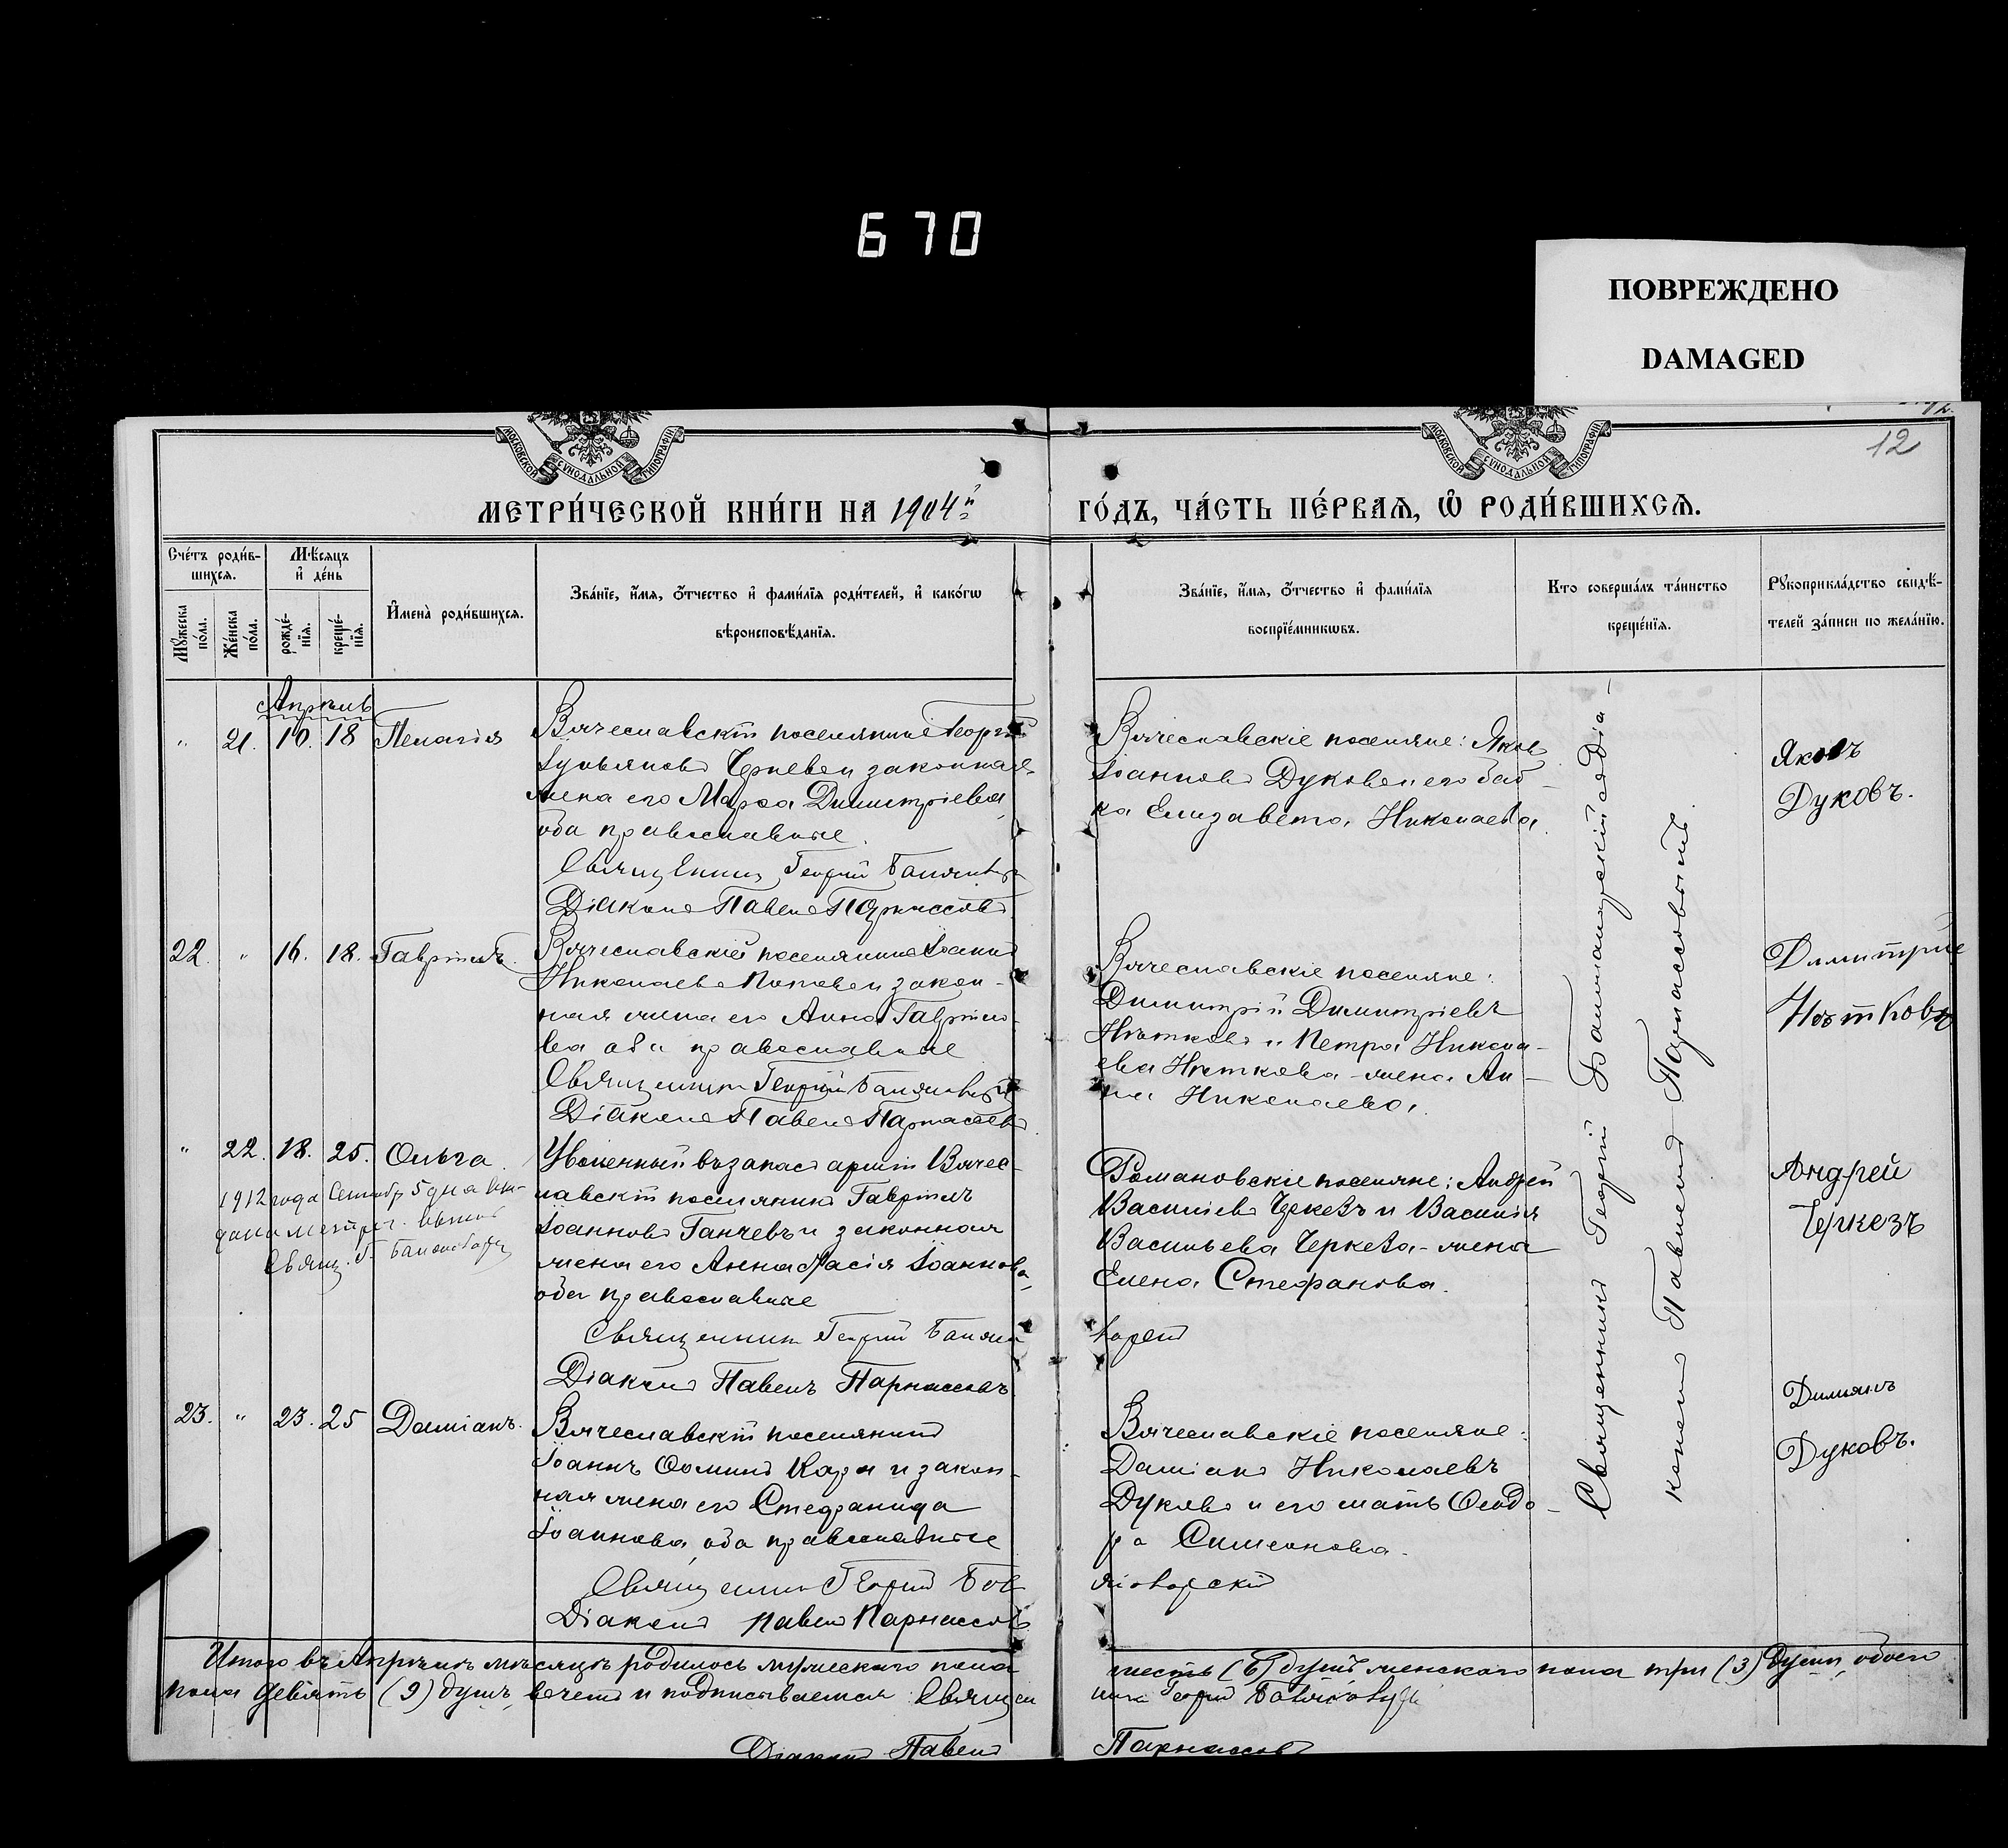 670
ПОВРЕЖДЕНО
DAMAGED
12
МОСКОВСКОЙ СУНОДАЛЬНОЙ ТИПОГРАФІИ
МОСКОВСКОЙ СУНОДАЛЬНОЙ ТИПОГРАФІИ
МЕТРИ́ЧЕСКОЙ КНИ́ГИ НА 1904й
ГО́ДЪ, ЧА́СТЬ ПЕ́РВАЯ, Ѡ РОДИ́ВШИХСЯ.
Сче́тъ роди́в-
шихся.
Мѣсяцъ
и де́нь
Мꙋ́жеска по́ла.
Же́нска по́ла.
рожде́-
нїя.
креще́-
нїя.
И҆мена̀ роди́вшихся.
Зва́нїе, и҆́мя, ѻ҆́тчество и҆ фами́лїя роди́телей, и҆ како́гѡ
вѣроисповѣ́данїя.
Зва́нїе, и҆́мя, ѻ҆́тчество и҆ фами́лїя
воспрїе́мникѡвъ.
Кто соверша́лъ та́инство
креще́нїя.
Рꙋкоприкла́дство свидѣ́-
телей за́писи по жела́нїю.
Апрѣль
" 21. 10. 18 Пелагія
Вячеславскій поселянинъ Георгій
Черневъ и законная
жена его Марѳа Димитріева,
оба православные.
Священникъ Георгій
Діаконъ Павелъ Парнассовъ
Вячеславскіе поселяне: Яковъ
Іоанновъ Дуковъ и его баб-
ка Елизавета Николаева.
Яковъ
Дуковъ.
22. " 16. 18. Гавріилъ.
Вячеславскій поселянинъ Іоаннъ
Николаевъ Поповъ и закон-
ная жена его Анна Гавріило-
ва оба православные
Священникъ Георгій
Діаконъ Павелъ Парнассовъ
Вячеславскіе поселяне:
Димитрій Димитріевъ
Нѣтковъ и Петра Никола-
ева Нѣткова жена Ан-
на Николаева.
Димитрие
Нѣтковъ
" 22. 18. 25. Ольга.
1912 года Сентябр 5 дня вы-
дана метрич. выпись
Свящ. Г.
Уволенный въ запасъ арміи Вячес-
лавскій поселянинъ Гавріилъ
Іоанновъ Ганчевъ и законная
жена его Анастасія Іоаннова,
оба православные
Священникъ Георгій
Діаконъ Павелъ Парнассовъ
Романовскіе поселяне: Андрей
Василіевъ Черкезъ и Василія
Васильева Черкеза жена
Елена Стефанова.
Андрей
Черкезъ
23. " 23. 25 Даміанъ.
Вячеславскій поселянинъ
Іоаннъ Ѳоминъ Кара и закон-
ная жена его Стефанида
Іоаннова, оба православные
Священникъ Георгій
Діаконъ Павелъ Парнассовъ
Вячеславскіе поселяне:
Даміанъ Николаевъ
Дуковъ и его мать Ѳеодо-
ра Симеонова.
Димианъ
Дуковъ.
Священникъ Георгій съ Діа-
кономъ Павломъ Парнассовымъ.
Итого въ Апрѣлѣ мѣсяцѣ родилось мужескаго пола
шесть (6) душъ женскаго пола три (3) души, обоего
пола девять (9) душъ, въ чемъ и подписываемся: Священ
никъ Георгій
Діаконъ Павелъ
Парнассовъ